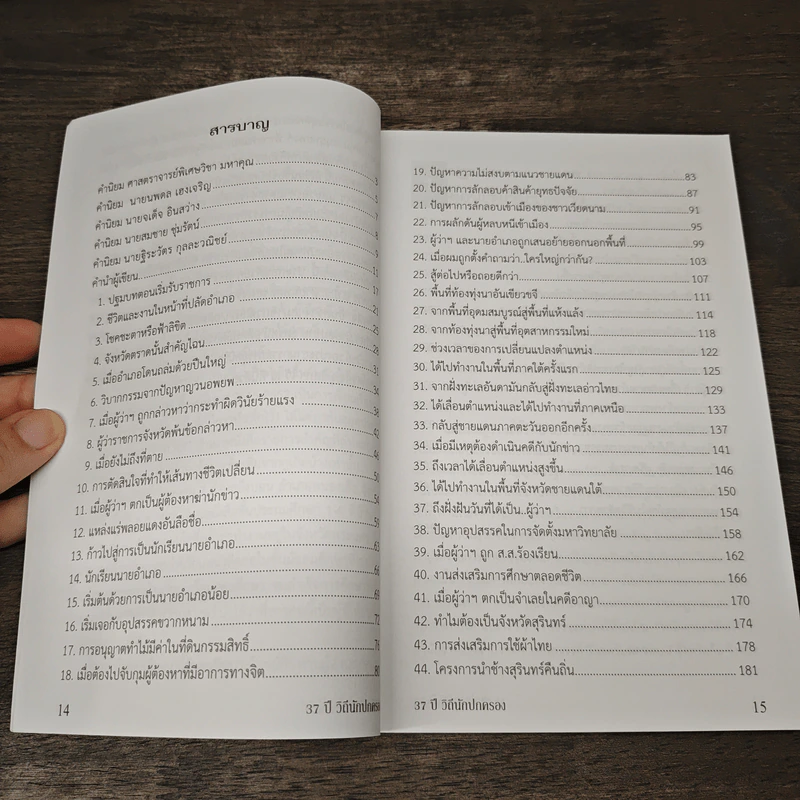 สารบาญ
คำนิยม ศาสตราจารย์พิเศษวิชา มหาคุณ
คำนิยม นายนพดล เฮงเจริญ
คำนิยม นายจเด็จ อินสว่าง
คำนิยม นายสมชาย ชุ่มรัตน์
คำนิยม นายฐิระวัตร กุลละวณิชย์
คำนำผู้เขียน
1. ปฐมบทตอนเริ่มรับราชการ
2. ชีวิตและงานในหน้าที่ปลัดอำเภอ
3. โชคชะตาหรือฟ้าลิขิต
4. จังหวัดตราดนั้นสำคัญไฉน
5. เมื่ออำเภอโดนถล่มด้วยปืนใหญ่
6. วิบากกรรมจากปัญหาญวนอพยพ
7. เมื่อผู้ว่าฯ ถูกกล่าวหาว่ากระทำผิดวินัยร้ายแรง
8. ผู้ว่าราชการจังหวัดพ้นข้อกล่าวหา
9. เมื่อยังไม่ถึงที่ตาย
10. การตัดสินใจที่ทำให้เส้นทางชีวิตเปลี่ยน 50
11. เมื่อผู้ว่าฯ ตกเป็นผู้ต้องหาฆ่านักข่าว 54
12. แหล่งแร่พลอยแดงอันลือชื่อ 59
13. ก้าวไปสู่การเป็นนักเรียนนายอำเภอ 63
14. นักเรียนนายอำเภอ 66
15. เริ่มต้นด้วยการเป็นนายอำเภอน้อย 69
16. เริ่มเจอกับอุปสรรคขวากหนาม 72
17. การอนุญาตทำไม้มีค่าในที่ดินกรรมสิทธิ์ 76
18. เมื่อต้องไปจับกุมผู้ต้องหาที่มีอาการทางจิต 80
14 37 ปี วิถีนักปกครอง
19. ปัญหาความไม่สงบตามแนวชายแดน 83
20. ปัญหาการลักลอบค้าสินค้ายุทธปัจจัย 87
21. ปัญหาการลักลอบเข้าเมืองของชาวเวียดนาม 91
22. การผลักดันผู้หลบหนีเข้าเมือง 95
23. ผู้ว่าฯ และนายอำเภอถูกเสนอย้ายออกนอกพื้นที่ 99
24. เมื่อผมถูกตั้งคำถามว่า..ใครใหญ่กว่ากัน? 103
25. สู้ต่อไปหรือถอยดีกว่า 107
26. พื้นที่ท้องทุ่งนาอันเขียวขจี 111
27. จากพื้นที่อุดมสมบูรณ์สู่พื้นที่แห้งแล้ง 114
28. จากท้องทุ่งนาสู่พื้นที่อุตสาหกรรมใหม่ 118
29. ช่วงเวลาของการเปลี่ยนแปลงตำแหน่ง 122
30. ได้ไปทำงานในพื้นที่ภาคใต้ครั้งแรก 125
31. จากฝั่งทะเลอันดามันกลับสู่ฝั่งทะเลอ่าวไทย 129
32. ได้เลื่อนตำแหน่งและได้ไปทำงานที่ภาคเหนือ 133
33. กลับสู่ชายแดนภาคตะวันออกอีกครั้ง 137
34. เมื่อมีเหตุต้องดำเนินคดีกับนักข่าว 141
35. ถึงเวลาได้เลื่อนตำแหน่งสูงขึ้น 146
36. ได้ไปทำงานในพื้นที่จังหวัดชายแดนใต้ 150
37. ถึงฝั่งฝันวันที่ได้เป็น..ผู้ว่าฯ 154
38. ปัญหาอุปสรรคในการจัดตั้งมหาวิทยาลัย 158
39. เมื่อผู้ว่าฯ ถูก ส.ส.ร้องเรียน 162
40. งานส่งเสริมการศึกษาตลอดชีวิต 166
41. เมื่อผู้ว่าฯ ตกเป็นจำเลยในคดีอาญา 170
42. ทำไมต้องเป็นจังหวัดสุรินทร์ 174
43. การส่งเสริมการใช้ผ้าไทย 178
44. โครงการนำช้างสุรินทร์คืนถิ่น 181
37 ปี วิถีนักปกครอง 15